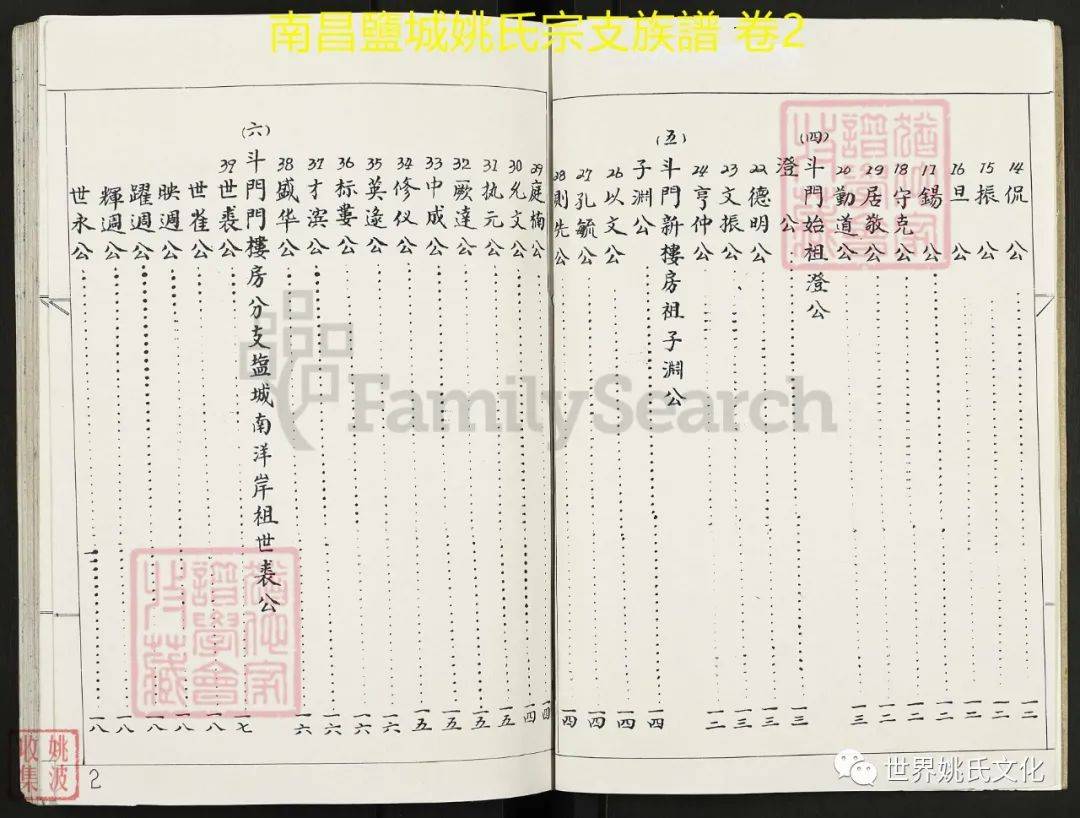 南昌鹽城姚氏宗支族譜 卷2
14 侃公 一二
15 振公 一二
16 旦公 一二
17 錫公 一二
18 守克公 一二
19 居敬公 一二
20 勤道公 一三
(四) 斗門始祖澄公
澄公 一三
22 德明公 一三
23 文振公 一三
24 亨仲公 一二
(五) 斗門新樓房祖子淵公
子淵公 一四
26 以文公 一四
27 孔毓公 一四
28 則先公 一四
29 庭楠公 一四
30 允文公 一四
31 执元公 一五
32 厥達公 一五
33 中成公 一五
34 修仪公 一五
35 英逵公 一六
36 标蔞公 一六
37 才滨公 一六
38 盛华公 一六
(六) 斗門門樓房分支塩城南洋岸祖世裘公
39 世裘公 一七
世萑公 一八
映週公 一八
躍週公 一八
輝週公 一八
世永公 一八
2
猶他家譜學會收藏
猶他家譜學會收藏
姚波收集
FamilySearch
世界姚氏文化